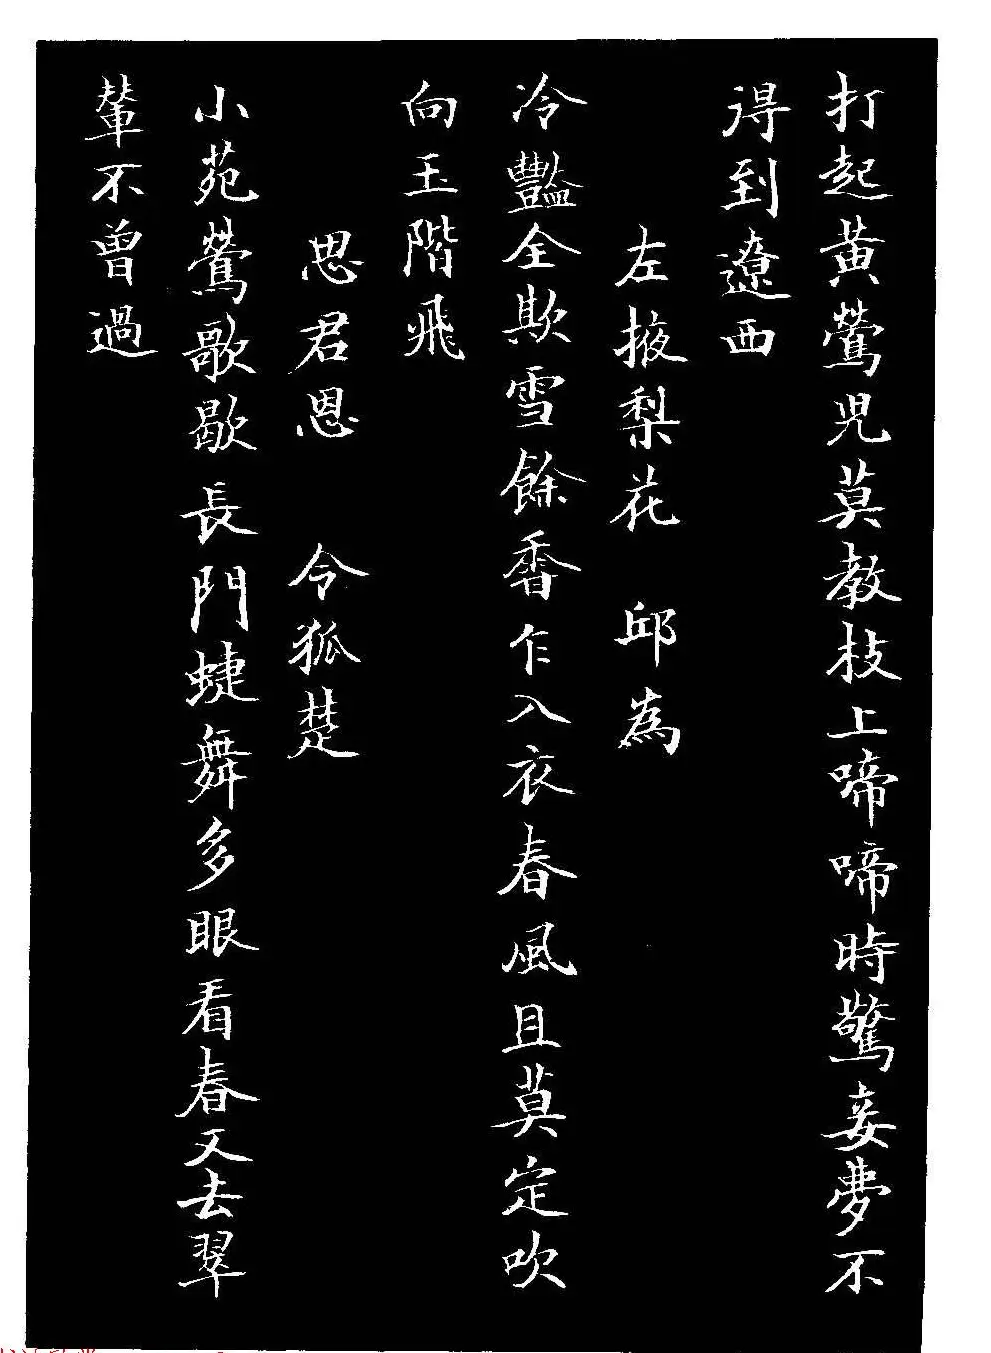 打起黃鶯児莫教枝上啼啼時驚妾夢不
得到遼西
左掖梨花 邱為
冷豔全欺雪餘香乍入衣春風且莫定吹
向玉階飛
思君恩 令狐楚
小苑鶯歌歇長門蜨舞多眼看春又去翠
輦不曾過